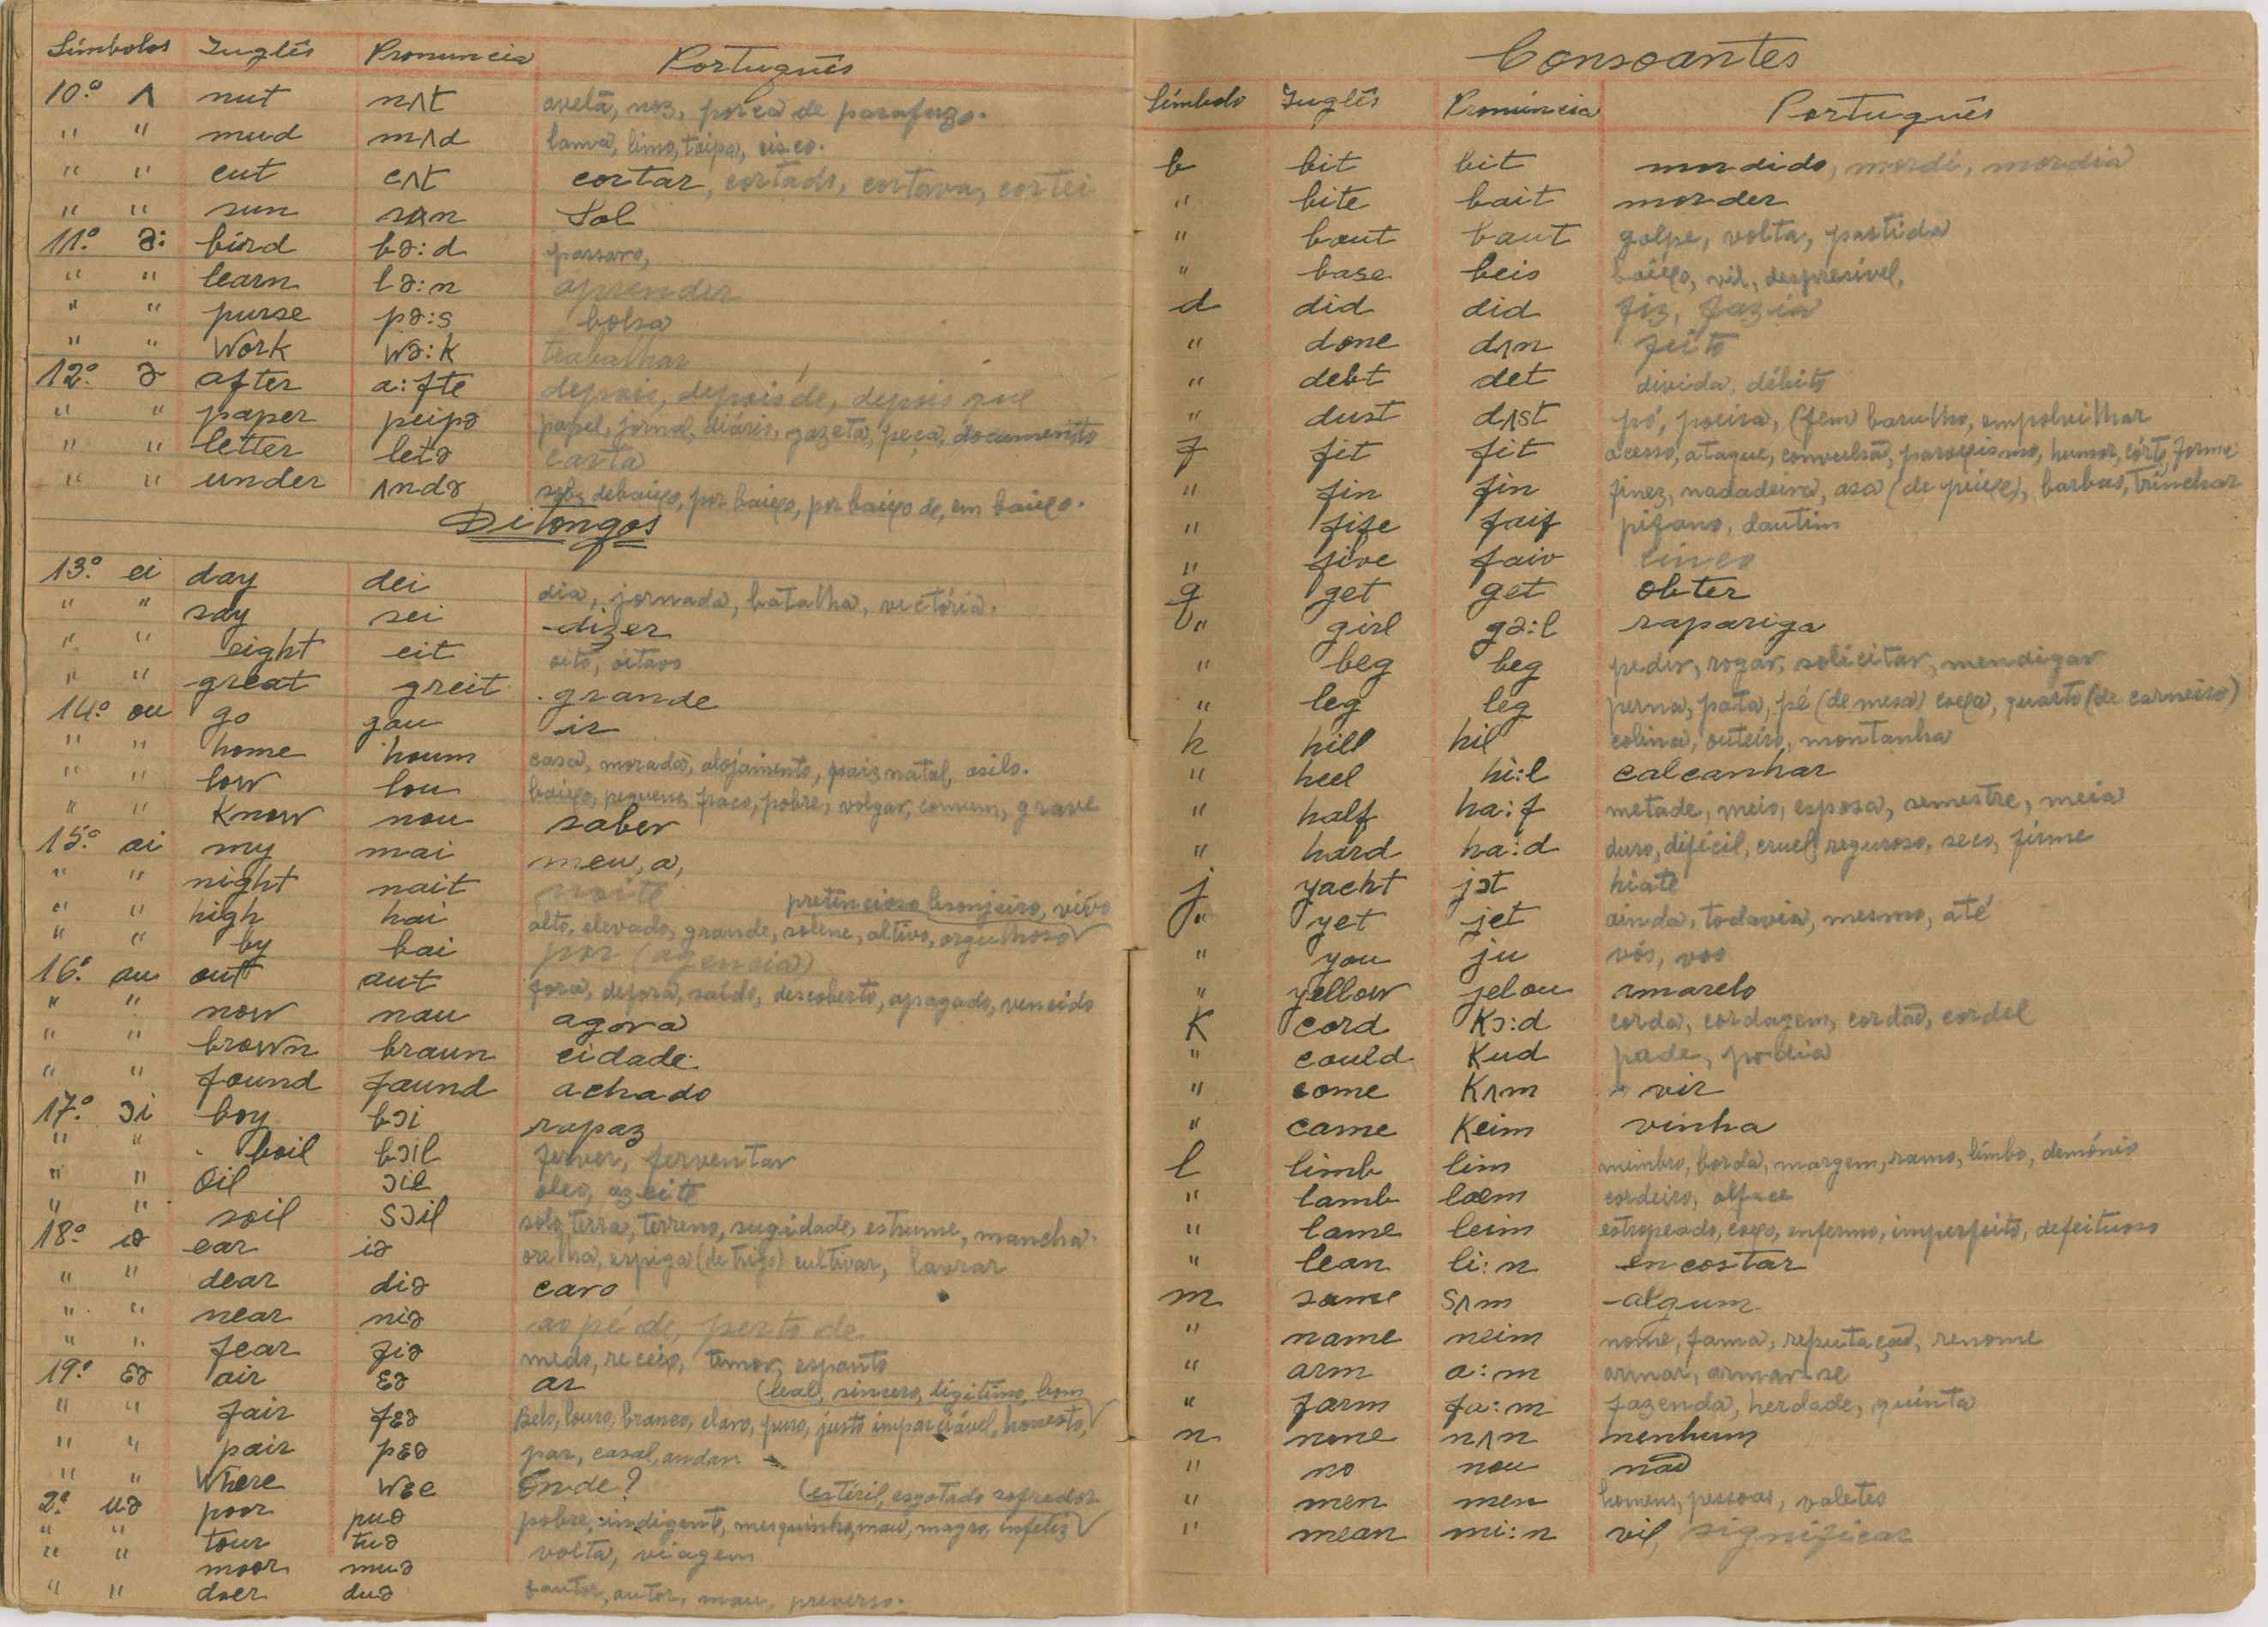 Símbolos Inglês Pronuncia Português
10.º ʌ nut nʌt avelã, noz, porca de parafuzo.
" " mud mʌd lama, limo, taipa, cisco.
" " cut cʌt cortar, cortado, cortava, cortei
" " sun sʌn Sol
11.º ə: bird bə:d passaro,
" " learn lə:n aprender
" " purse pə:s bolsa
" " Work wə:k trabalhar
12.º ə after a:fte depois, depois de, depois que
" " paper peipə papel, jornal, diário, gazeta, peça, documento
" " letter letə carta
" " under ʌndə sob, debaixo, por baixo, por baixo de, em baixo.
Ditongos
13.º ei day dei dia, jornada, batalha, victória.
" " say sei -dizer
" " eight eit oito, oitavo
" " great greit . grande
14.º ou go gou ir
" " home houm casa, morada, alojamento, paiz natal, asilo.
" " low lou baixo, pequeno, fraco, pobre, volgar, comum, grave
" " Know nou saber
15.º ai my mai meu, a,
" " night nait noite
pretencioso lisonjeiro, vivo
" " high hai alto, elevado, grande, solene, altivo, orgulhoso
" " by bai por (agencia)
16.º au out aut fora, defora, saído, descoberto, apagado, vencido
" " now nau agora
" " brown braun cidade
" " found faund achado
17.º ɔi boy bɔi rapaz
" " boil bɔil ferver, ferventar
" " Oil ɔil oleo, azeite
" " soil sɔil solo, terra, terreno, sugidade, estrume, mancha.
18.º iə ear iə orelha, espiga (de trigo) cultivar, lavrar
" " dear diə caro
" " near niə ao pé de, perto de
" " fear fiə medo, receio, temor, espanto
19.º ɛə air ɛə ar
(leal, sincero, ligitimo, bom
" " fair fɛə belo, louro, branco, claro, puro, justo imparciável, honesto,
" " pair pɛə par, casal, andar.
" " Where wɛe Onde?
(estiril, esgotado sofredor
2.º uə poor puə pobre, indigente, mesquinho, mau, magro, infeliz
" " tour tuə volta, viagem
" " moor muə
" " doer duə fautor, autor, mau, preverso.
Consoantes
Símbolo Inglês Pronúncia Português
b bit bit mordido, mordi, mordia
" bite bait morder
" bout baut golpe, volta, partida
" base beis baixo, vil, despresivel,
d did did fiz, fazia
" done dʌn feito
" debt det divida, débito
" dust dʌst pó, poeira, (fem) barulho, empolvilhar
f fit fit acesso, ataque, convulsão, paroxismo, humor, córte, forme
" fin fin finez, nadadeira, asa (de peixe), barbas, trinchar
" fife faif pifano, flautim
" five faiv cinco
g get get obter
" girl gə:l rapariga
" beg beg pedir, rogar, solicitar, mendigar
" leg leg perna, pata, pé (de mesa) coxa, quarto (de carneiro)
h hill hil colina, outeiro, montanha
" heel hi:l calcanhar
" half ha:f metade, meio, esposa, semestre, meia
" hard ha:d duro, dificil, cruel, reguroso, seco, firme
j yacht jɔt hiate
" yet jet ainda, todavia, mesmo, até
" you ju vós, vos
" yellow jelou amarelo
K cord Kɔ:d corda, cordagem, cordão, cordel
" could Kud pode, podia
" come Kʌm vir
" came Keim vinha
l limb lim membro, borda, margem, ramo, limbo, demónio
" lamb læm cordeiro, alface
" lame leim estropeado, coxo, enfermo, imperfeito, defeituoso
" lean li:n encostar
m some sʌm -algum
" name neim nome, fama, reputação, renome
" arm a:m armar, armar-se
" farm fa:m fazenda, herdade, quinta
n none nʌn nenhum
" no nou não
" men men homens, pessoas, valetes
" mean mi:n vil, significar